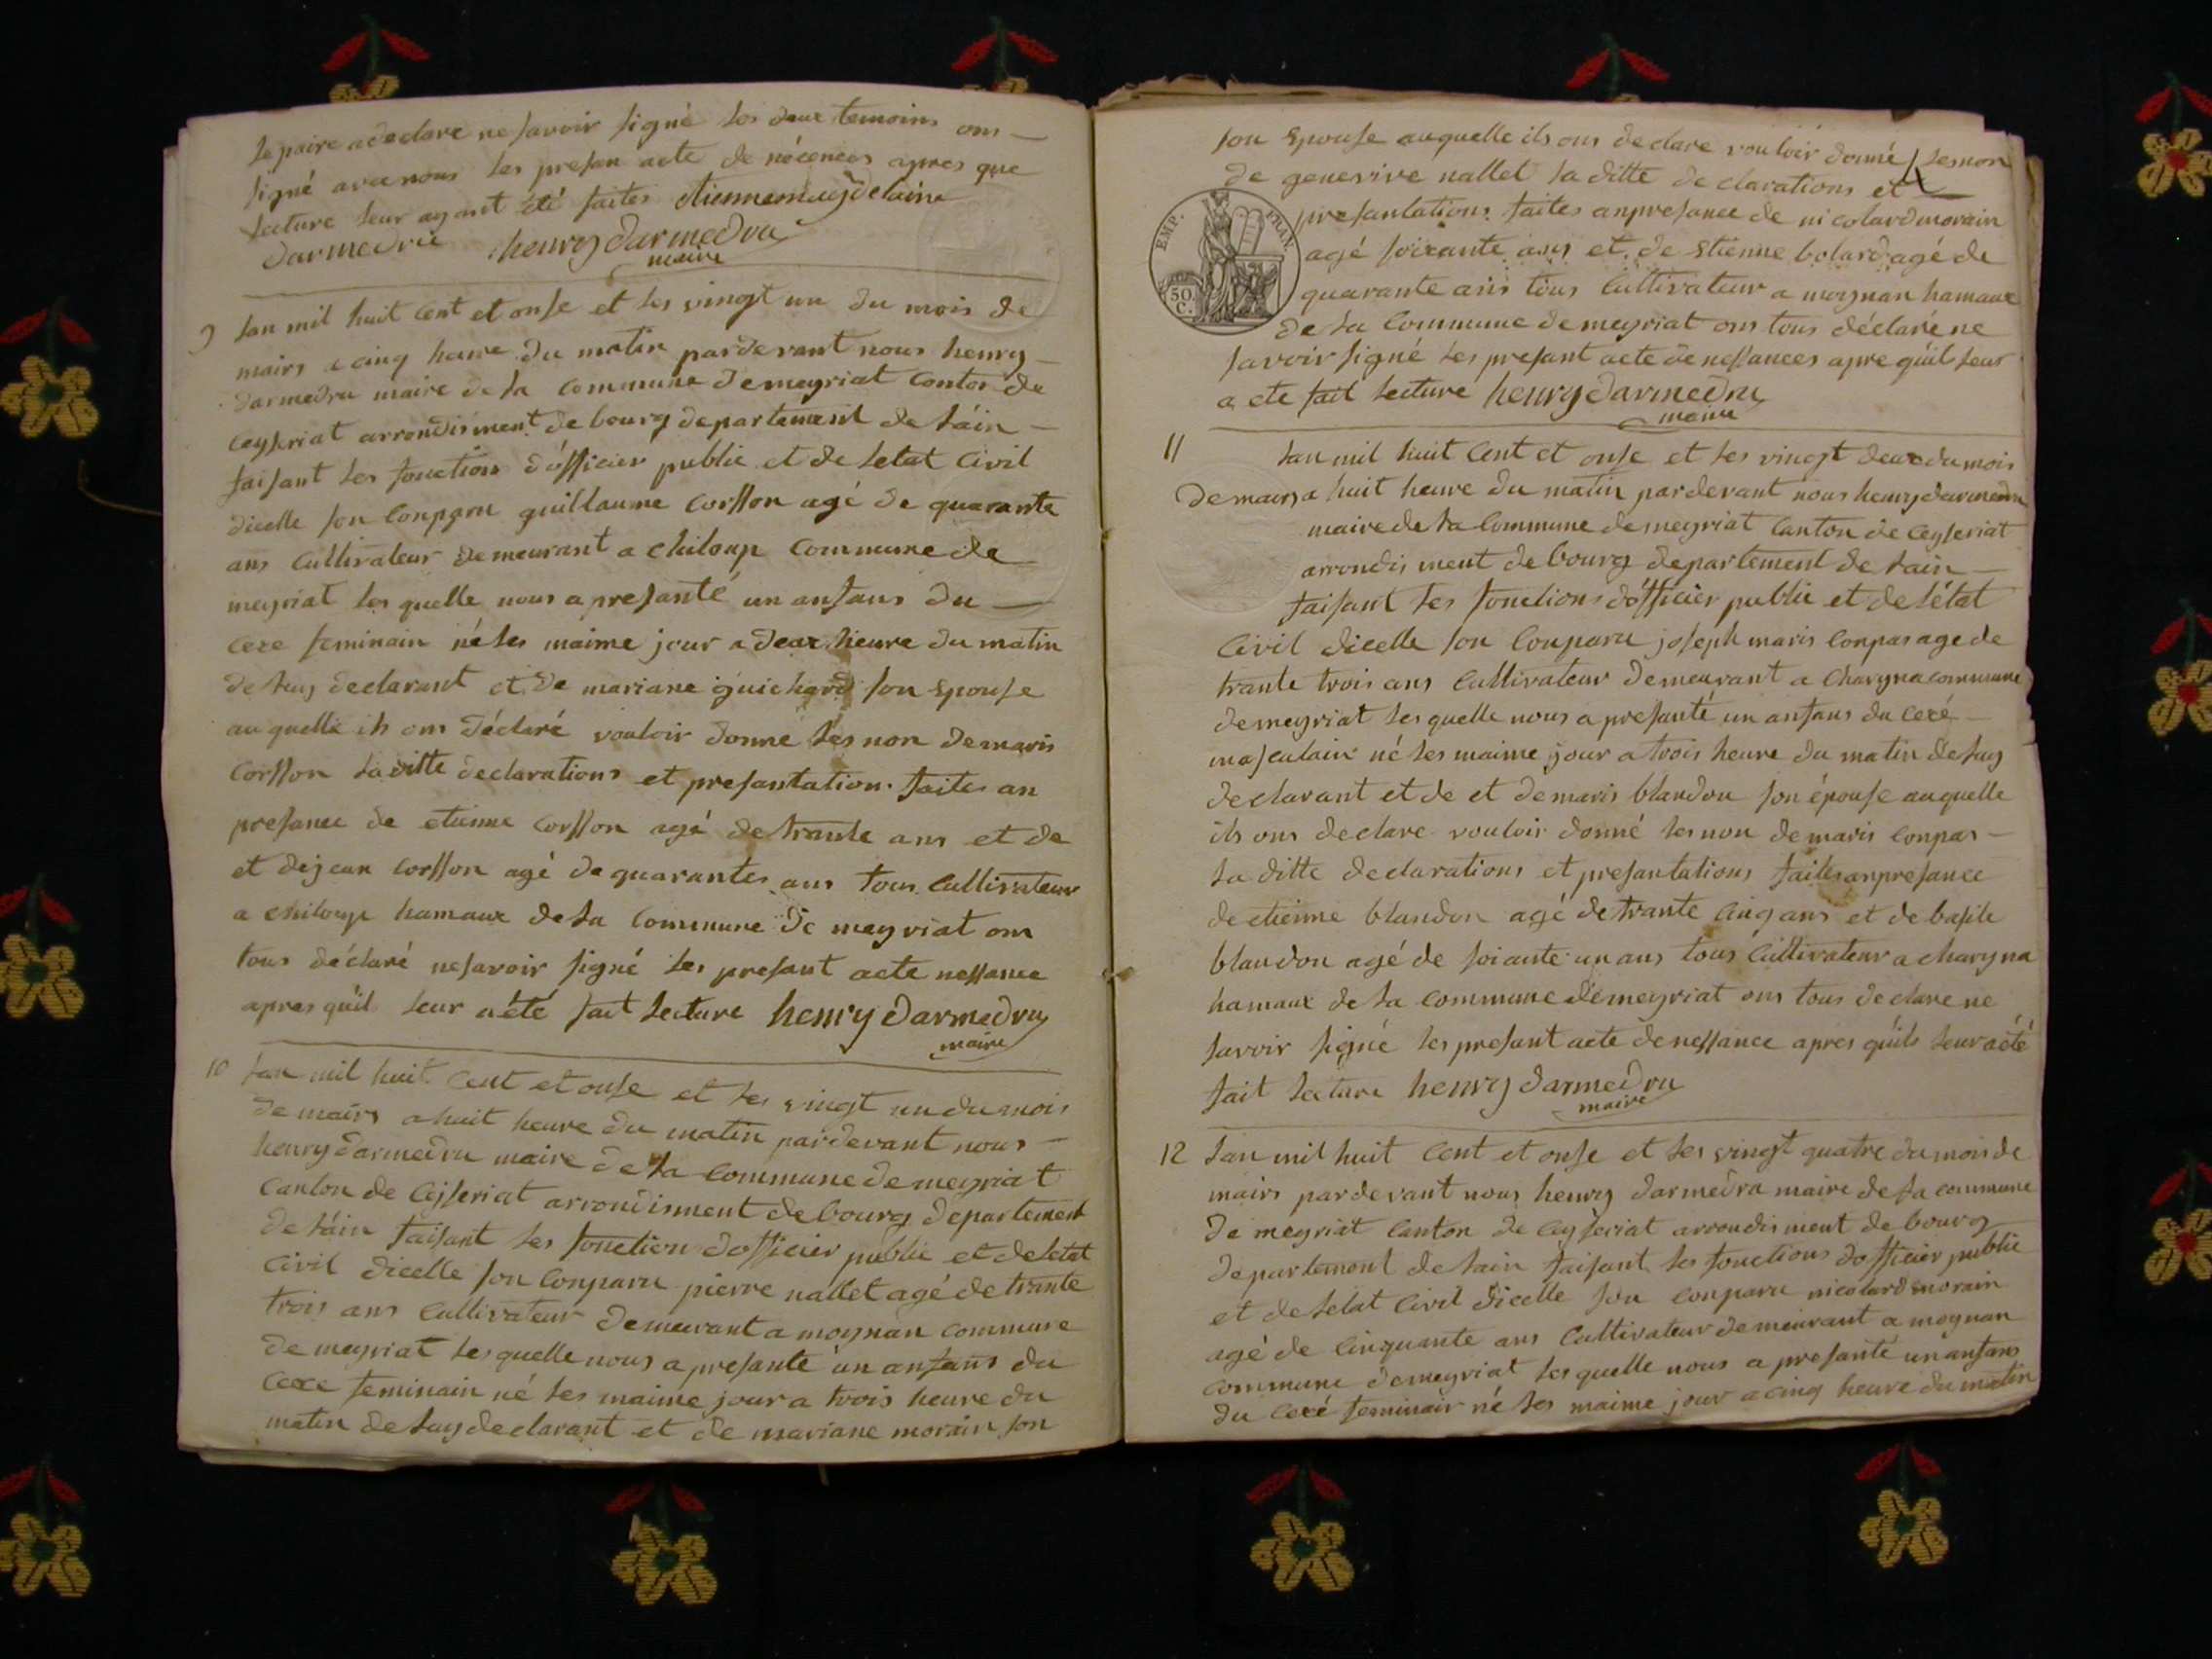 le paire a declare ne savoir signé les deux temoins ons
signé avec nous les presan acte de nécences apres que
lecture leur ayant été faites etienne
darmedru henry darmedru
maire
9 lan mil huit cent et onse et les vingt un du mois de
mairs a cinq heure du matin pardevant nous henry
darmedru maire de la commune de meyriat canton de
ceyseriat arrondisment de bourg departement de láin
faisant les fonction dófficier public et de letat civil
dicelle son conparu guillaume corsson agé de quarante
ans cultivateur demeurant a chiloup commune de
meyriat les quelle nous a presanté un anfans du
cexe feminain né les maime jour a deux heure du matin
de luy declarant et de mariane guichard son epouse
au quelle ils ons déclaré vouloir donné les non de maris
corsson la ditte declarations et presantation faites an
presance de etienne corsson agé de trante ans et de
et de jean corsson agé de quarantes ans tous cultivateur
a chiloup hamaux de la commune de meyriat ons
tous déclaré ne savoir signé les presant acte nessance
apres quil leur a été fait lecture henry darmedru
maire
10 lan mil huit cent et onse et les vingt un du mois
de mairs a huit heure du matin pardevant nous
henry darmedru maire de la commune de meyriat
canton de ceyseriat arrondisment de bourg departement
de láin faisant les fonction dofficier public et de letat
civil dicelle son conparu pierre nallet agé de trante
trois ans cultivateur demeurant a moynan commune
de meyriat les quelle nous a presanté un anfans du
cexe feminain né les maime jour a trois heure du
matin de luy declarant et de mariane morain son
son epouse auquelle ils ons declare vouloir donné les non
de genevive nallet la ditte declarations et
presantations faites anpresance de nicolard morain
agé soixante ans et de etienne bolard agé de
quarante ans tous cultivateur a moynan hamaux
de la commune de meyriat ons tous déclaré ne
savoir signé les presant acte de nessances apre quil leur
a ete fait lecture henry darmedru
maire
EMP. FRAN.
50.
C.
11 lan mil huit cent et onse et les vingt deux du mois
de mairs a huit heure du matin pardevant nous henry darmedru
maire de la commune de meyriat canton de ceyseriat
arrondisment de bourg departement de lain
faisant les fonctions dófficier public et de létat
civil dicelle son conparu joseph maris conpas age de
trante trois ans cultivateur demeurant a charyna commune
de meyriat les quelle nous a presanté un anfans du cexé
masculain né les maime jour a trois heure du matin de luy
declarant et de et de maris blandon son épouse auquelle
ils ons declare vouloir donné les non de maris conpas
la ditte declarations et presantations faites anpresance
de etienne blandon agé de trante cinq ans et de basile
blandon agé de soiante un ans tous cultivateur a charyna
hamaux de la commune de meyriat ons tous declare ne
savoir signé les presant acte de nessance apres quils leur a été
fait lecture henry darmedru
maire
12 lan mil huit cent et onse et les vingt quatre du mois de
mairs pardevant nous henry darmedru maire de la commune
de meyriat canton de ceyseriat arrondisment de bourg
departement de lain faisant les fonctions dofficier public
et de letat civil dicelle son conparu nicolard morain
agé de cinquante ans cultivateur demeurant a moynan
commune de meyriat les quelle nous a presanté un anfans
du cexé feminair né les maime jour a cinq heure du matin